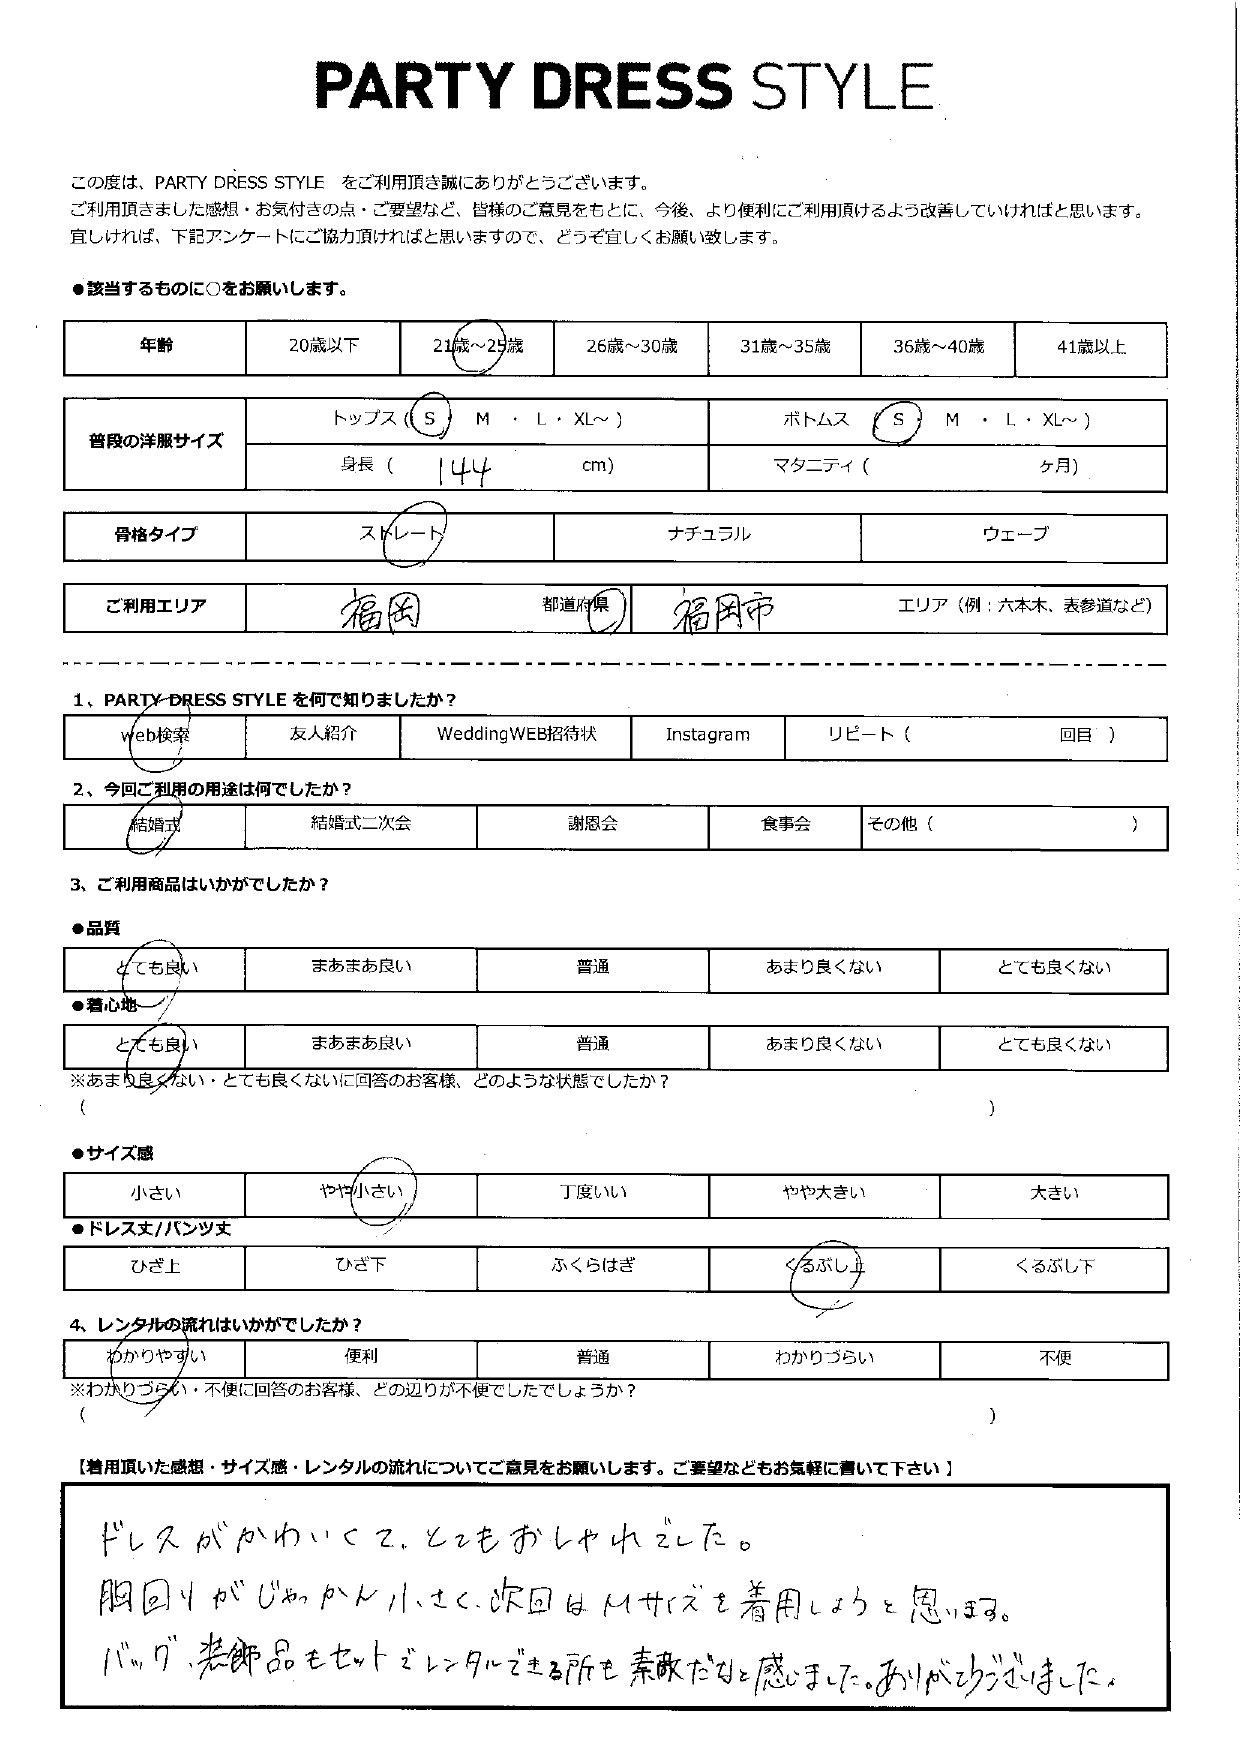 PARTY DRESS STYLE
この度は、PARTY DRESS STYLE をご利用頂き誠にありがとうございます。
ご利用頂きました感想・お気付きの点・ご要望など、皆様のご意見をもとに、今後、より便利にご利用頂けるよう改善していければと思います。
宜しければ、下記アンケートにご協力頂ければと思いますので、どうぞ宜しくお願い致します。
●該当するものに○をお願いします。
年齢 20歳以下 21歳～25歳 26歳～30歳 31歳～35歳 36歳～40歳 41歳以上
普段の洋服サイズ トップス ( S ・ M ・ L ・ XL～ ) ボトムス ( S ・ M ・ L ・ XL～ )
身長 ( 144 cm) マタニティ ( ヶ月)
骨格タイプ ストレート ナチュラル ウェーブ
ご利用エリア 福岡 都道府県 福岡市 エリア（例：六本木、表参道など）
1、PARTY DRESS STYLE を何で知りましたか？
web検索 友人紹介 WeddingWEB招待状 Instagram リピート ( 回目 )
2、今回ご利用の用途は何でしたか？
結婚式 結婚式二次会 謝恩会 食事会 その他 ( )
3、ご利用商品はいかがでしたか？
●品質
とても良い まあまあ良い 普通 あまり良くない とても良くない
●着心地
とても良い まあまあ良い 普通 あまり良くない とても良くない
※あまり良くない・とても良くないに回答のお客様、どのような状態でしたか？
( )
●サイズ感
小さい やや小さい 丁度いい やや大きい 大きい
●ドレス丈/パンツ丈
ひざ上 ひざ下 ふくらはぎ くるぶし上 くるぶし下
4、レンタルの流れはいかがでしたか？
わかりやすい 便利 普通 わかりづらい 不便
※わかりづらい・不便に回答のお客様、どの辺りが不便でしたでしょうか？
( )
【着用頂いた感想・サイズ感・レンタルの流れについてご意見をお願いします。ご要望などもお気軽に書いて下さい 】
ドレスがかわいくて、とてもおしゃれでした。
胸回りがじゃっかん小さく、次回はMサイズを着用しようと思います。
バッグ、装飾品もセットでレンタルできる所も素敵だなと感じました。ありがとうございました。